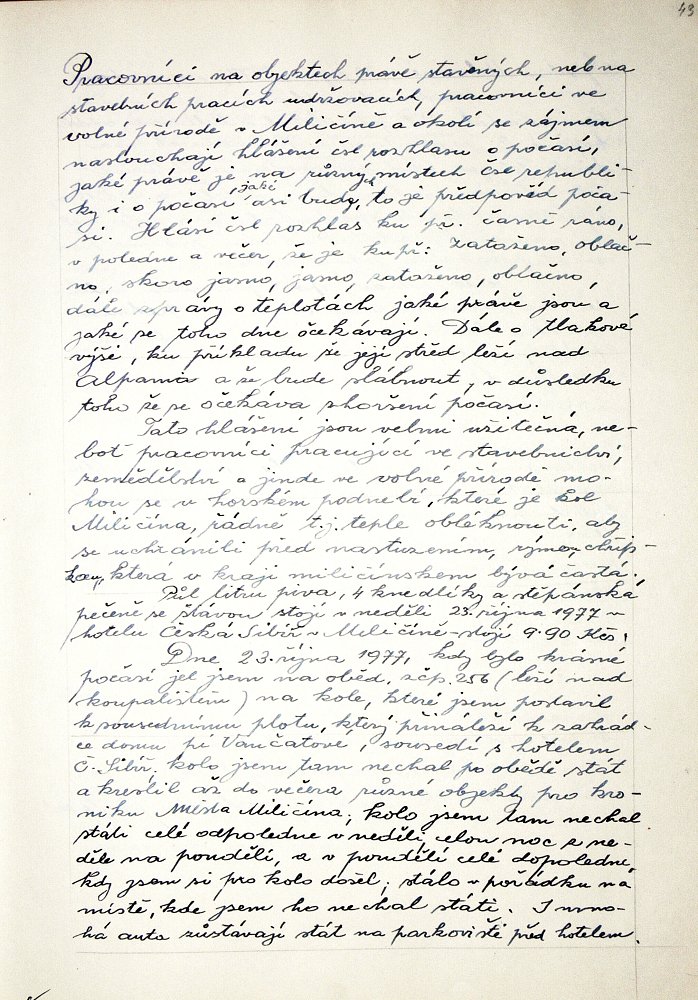 43
Pracovníci na objektech právě stavěných, neb na
stavebních pracích udržovacích, pracovníci ve
volné přírodě v Miličíně a okolí se zájmem
naslouchají hlášení čsl rozhlasu o počasí,
jaké právě je na různých místech čsl republi-
ky i o počasí, jaké asi bude, to je předpověd poča-
sí. Hlásí čsl rozhlas ku př. časně ráno,
v poledne a večer, že je ku př: zataženo, oblač-
no, skoro jasno, jasno, zataženo, oblačno,
dále zprávy o teplotách jaké právě jsou a
jaké se toho dne očekávají. Dále o tlakové
výši, ku příkladu že její střed leží nad
Alpama a že bude slábnout, v důsledku
toho že se očekává zhoršení počasí.
Tato hlášení jsou velmi užitečná, ne-
boť pracovníci pracující ve stavebnictví,
zemědělství a jinde ve volné přírodě mo-
hou se v horském podnebí, které je kol
Miličína, řádně t.j. teple obléknouti, aby
se uchránili před nastuzením, rýmou, chřip-
kou, která v kraji miličínském bývá častá.
Půl litru piva, 4 knedlíky a štěpánská
pečeně se šťávou stojí v neděli 23. října 1977 v
hotelu Česká Sibiř v Miličíně - stojí 9.90 Kčs.
Dne 23. října 1977, kdy bylo krásné
počasí jel jsem na oběd, z čp. 256 (leží nad
koupalištěm) na kole, které jsem postavil
k sousednímu plotu, který přináleží k zahrád-
ce domu pí Vančatové, sousedí s hotelem
Č. Sibiř, kolo jsem tam nechal po obědě stát
a kreslil až do večera různé objekty pro kro-
niku Města Miličína; kolo jsem tam nechal
státi celé odpoledne v neděli, celou noc z ne-
děle na pondělí, a v pondělí celé dopoledne,
kdy jsem si pro kolo došel; stálo v pořádku na
místě, kde jsem ho nechal státi. I mno-
há auta zůstávají stát na parkovišti před hotelem.